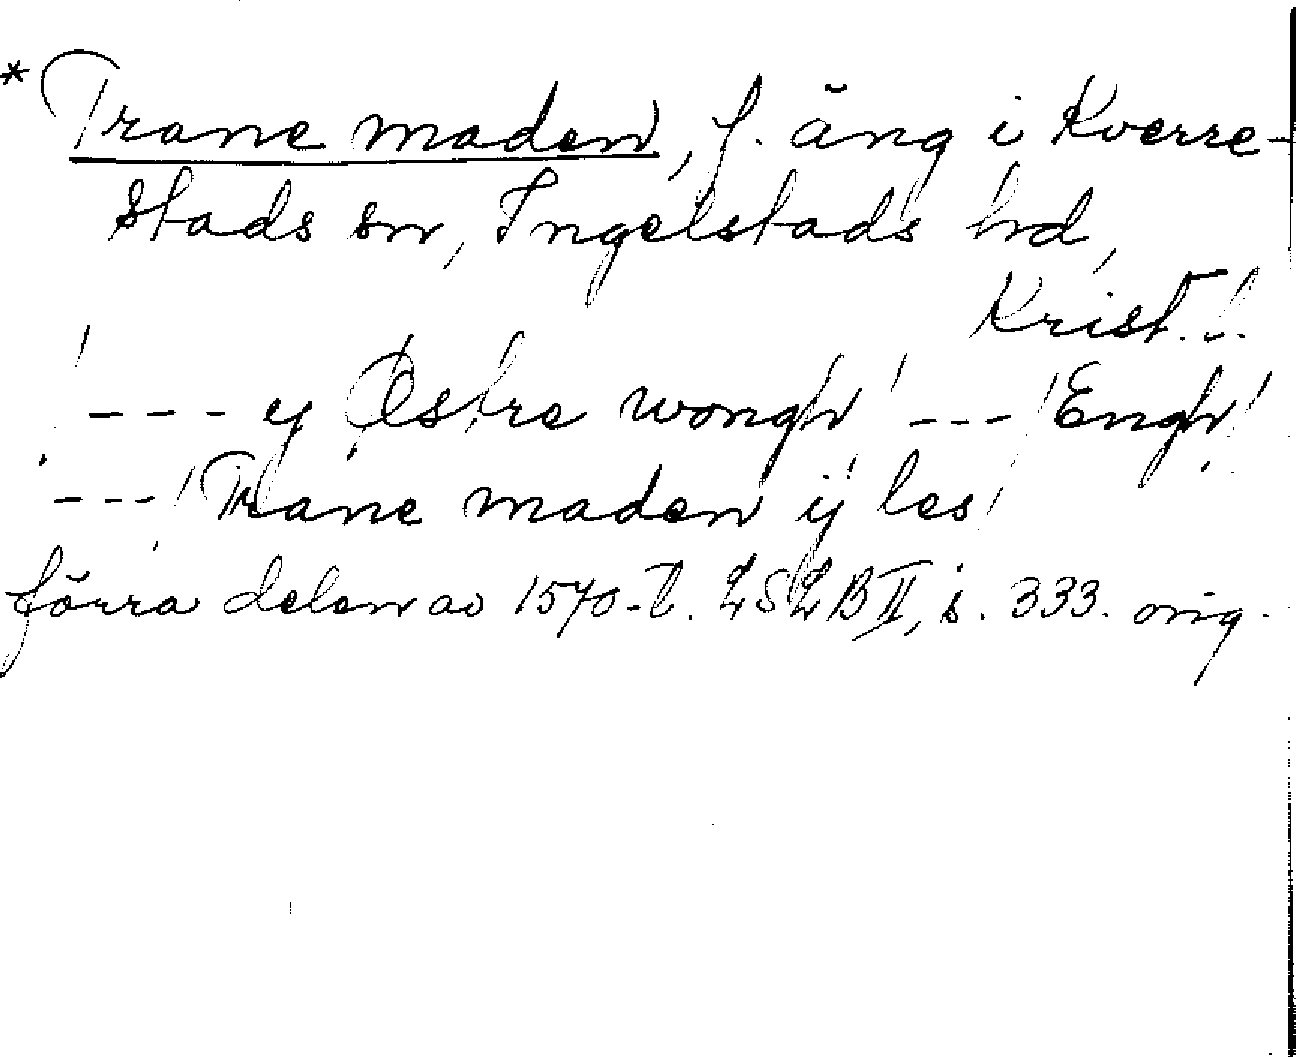 * Trane maden, f. äng i Kverre-
stads sn, Ingelstads hd,
Krist. l.
'--- ij Østre wongh' --- 'Engh'
--- 'Trane maden ij les'
förra delen av 1570-t. LSLB II, s. 333. orig.